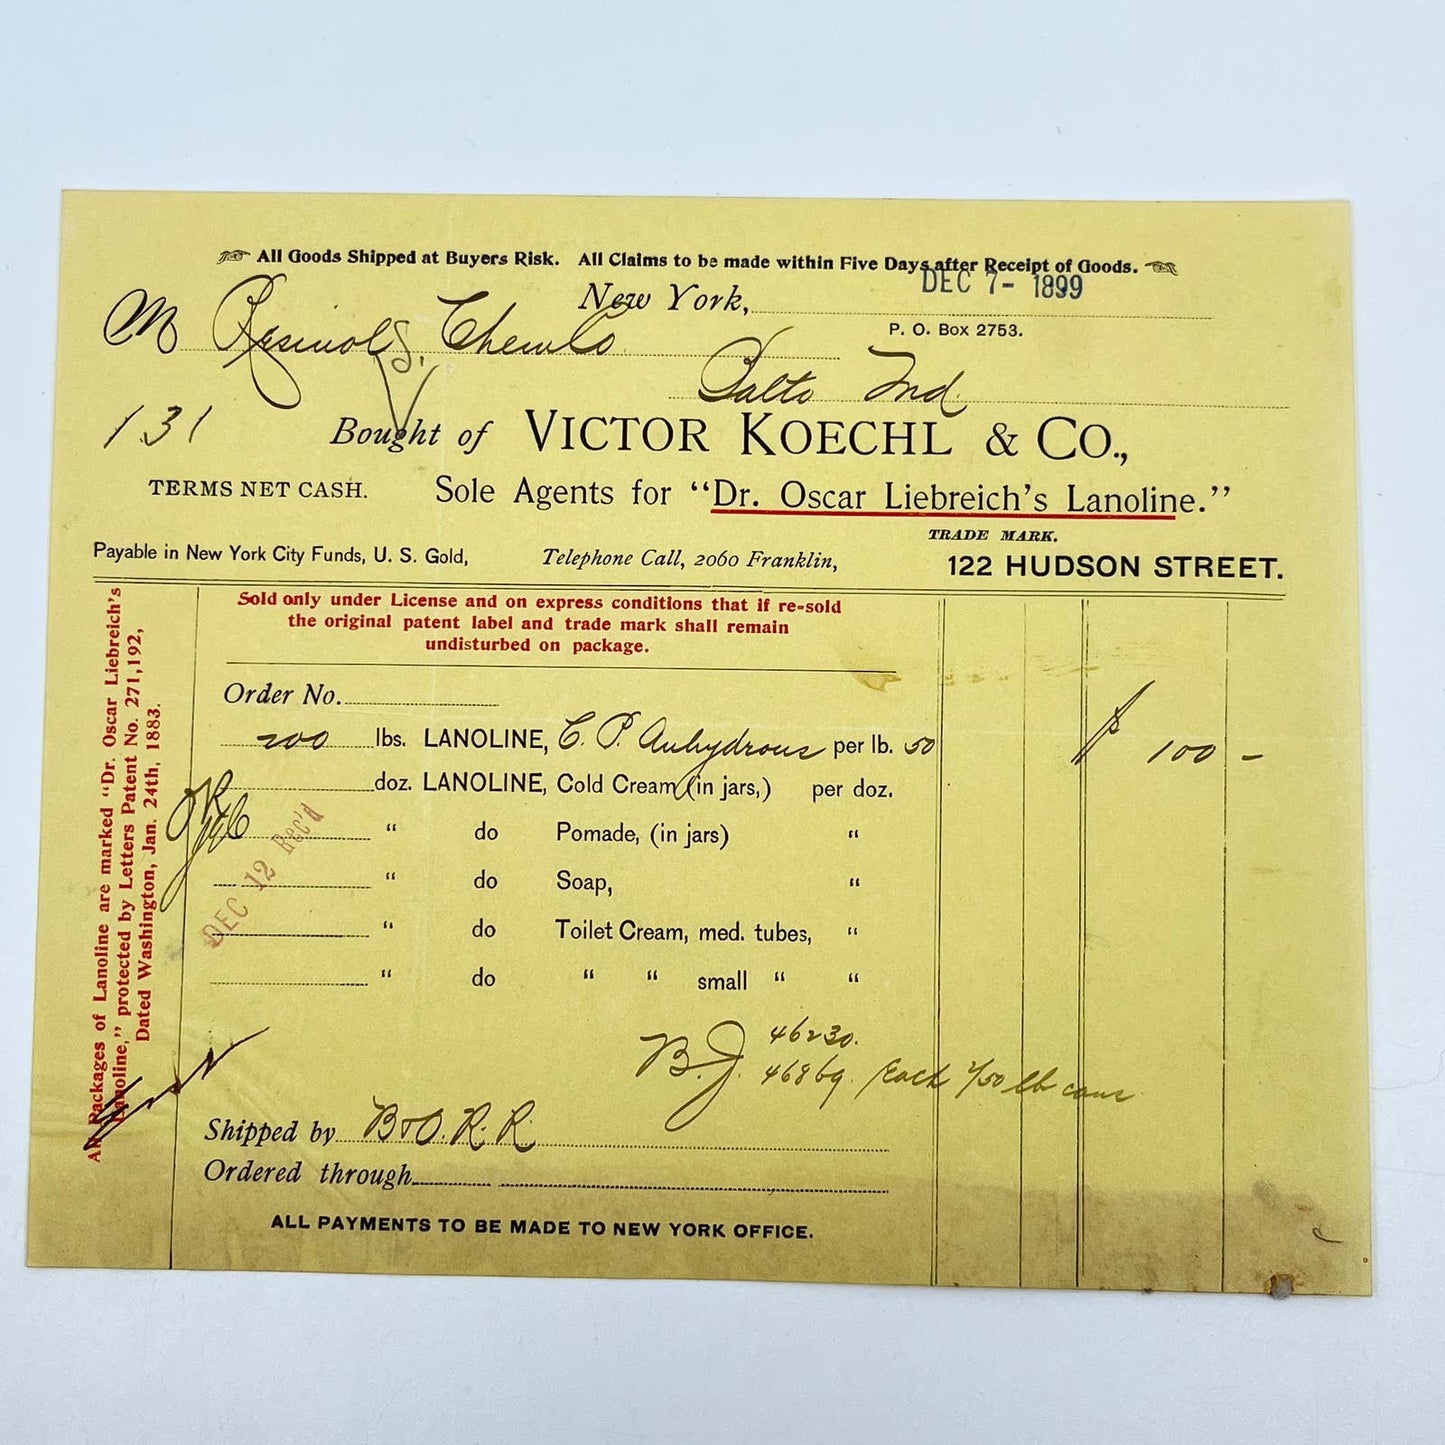 All Goods Shipped at Buyers Risk. All Claims to be made within Five Days after Receipt of Goods.
DEC 7- 1899
New York,
P. O. Box 2753.
M Resinol Chem Co
Balto Md.
131
Bought of VICTOR KOECHL & CO.,
TERMS NET CASH. Sole Agents for “Dr. Oscar Liebreich's Lanoline.”
TRADE MARK.
Payable in New York City Funds, U. S. Gold, Telephone Call, 2060 Franklin, 122 HUDSON STREET.
Sold only under License and on express conditions that if re-sold
the original patent label and trade mark shall remain
undisturbed on package.
All Packages of Lanoline are marked “Dr. Oscar Liebreich's
Lanoline,” protected by Letters Patent No. 271,192,
Dated Washington, Jan. 24th, 1883.
Order No.
200 lbs. LANOLINE, C. P. Anhydrous per lb. 50 $ 100 -
doz. LANOLINE, Cold Cream (in jars,) per doz.
OK
“ do Pomade, (in jars) “
“ do Soap, “
DEC 12 Rec'd
“ do Toilet Cream, med. tubes, “
“ do “ “ small “ “
B.J. 46230.
46869. Each 2/50 lb cans
Shipped by B & O. R. R.
Ordered through
ALL PAYMENTS TO BE MADE TO NEW YORK OFFICE.